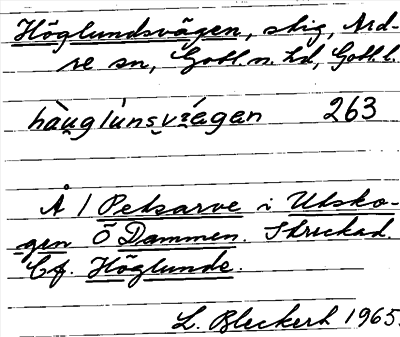 Höglundsvägen, stig, Ard-
re sn, Gotl. n. hd, Gotl. l.
hàu̯glúnsvä́gen 263
Å / Petsarve i Utsko-
gen Ö Dammen. Streckad.
Cf. Höglunde.
L. Bleckert 1965.